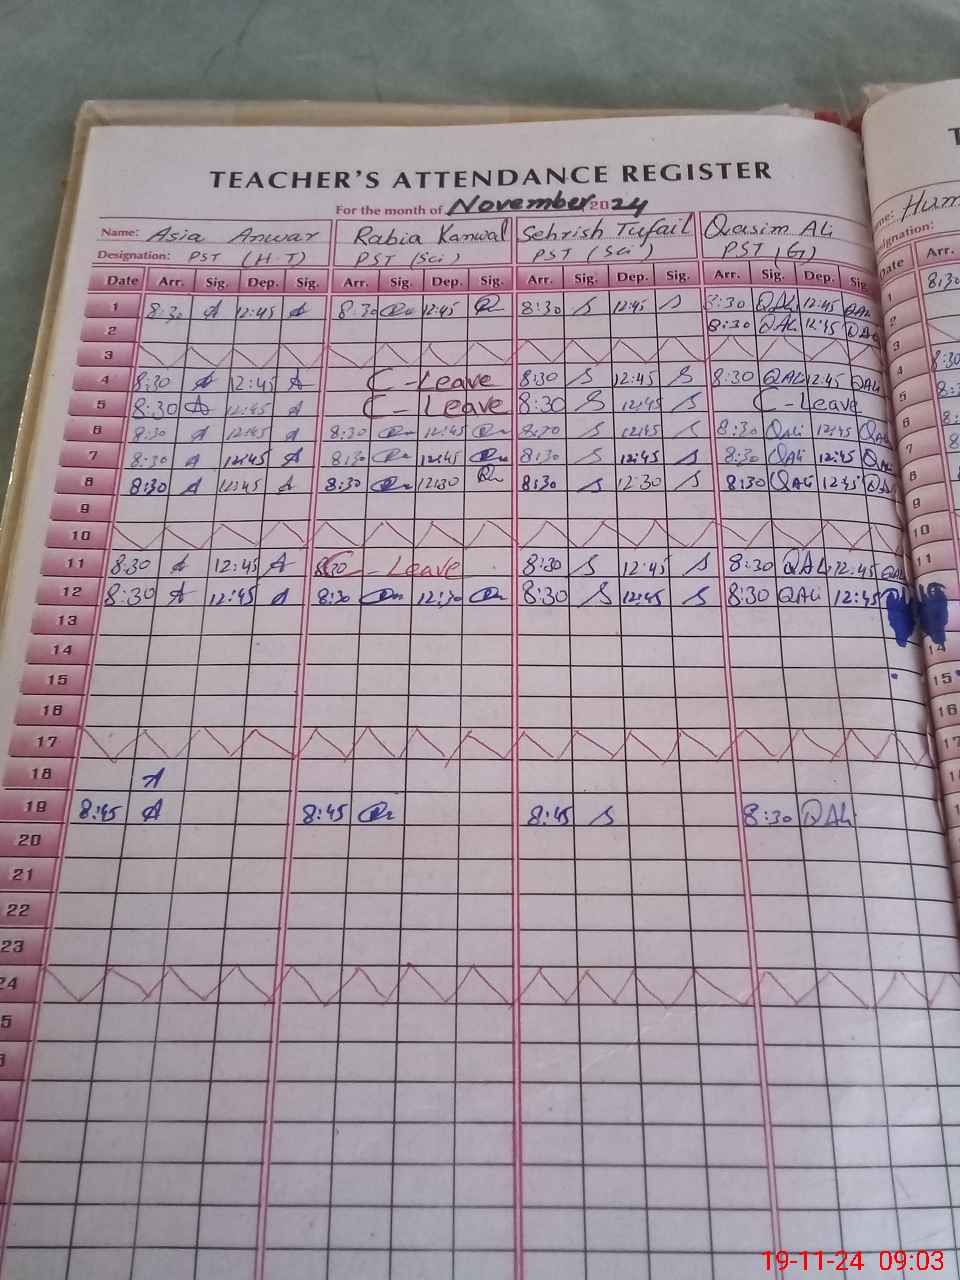 TEACHER'S ATTENDANCE REGISTER
For the month of November 2024
Name: Asia Anwar Rabia Kanwal Sehrish Tufail Qasim Ali
Designation: PST (H-T) PST (Sci) PST (Sci) PST (G)
Date Arr. Sig. Dep. Sig. Arr. Sig. Dep. Sig. Arr. Sig. Dep. Sig. Arr. Sig. Dep. Sig.
1 8:30 A 12:45 A 8:30 12:45 8:30 S 12:45 S 8:30 QALi 12:45 QALi
2 8:30 QALi 12:45 QALi
3
4 8:30 A 12:45 A C-Leave 8:30 S 12:45 S 8:30 QALi 12:45 QALi
5 8:30 A 12:45 A C-Leave 8:30 S 12:45 S C-Leave
6 8:30 A 12:45 A 8:30 12:45 8:30 S 12:45 S 8:30 QALi 12:45 QALi
7 8:30 A 12:45 A 8:30 12:45 8:30 S 12:45 S 8:30 QALi 12:45 QALi
8 8:30 A 12:45 A 8:30 12:30 8:30 S 12:30 S 8:30 QALi 12:45 QALi
9
10
11 8:30 A 12:45 A 8:30 C-Leave 8:30 S 12:45 S 8:30 QALi 12:45 QALi
12 8:30 A 12:45 A 8:30 12:30 8:30 S 12:45 S 8:30 QALi 12:45
13
14
15
16
17
18 A
19 8:45 A 8:45 8:45 S 8:30 QALi
20
21
22
23
24
5
Hum
Designation:
Date Arr.
1 8:30
2
3
4 8:30
5 8:3
6 8:
7 8:
8
9
10
11
14
15
16
17
19-11-24 09:03